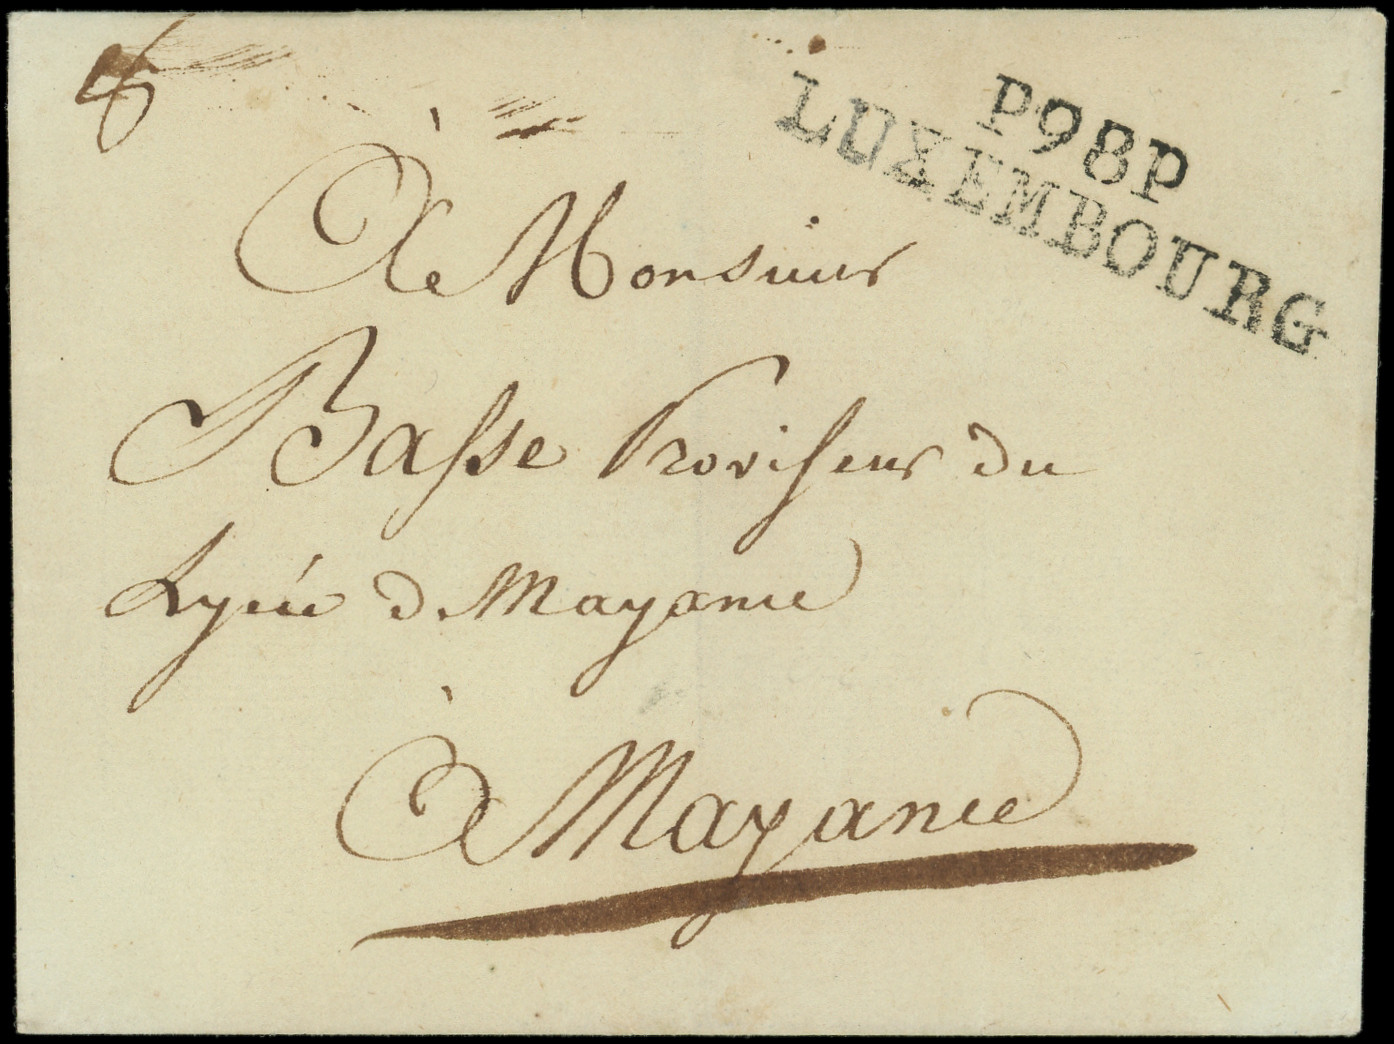 P98P
LUXEMBOURG
À Monsieur
Basse Proviseur du
Lycée de Mayance
à Mayance